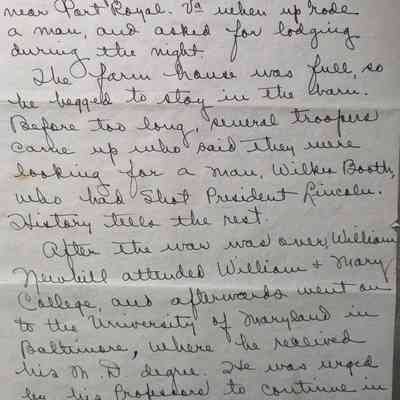 near Port Royal. Va when up rode
a man, and asked for lodging
during the night.
The farm house was full, so
he begged to stay in the barn.
Before too long, several troopers
came up who said they were
looking for a man, Wilkes Booth,
who had Shot President Lincoln.
History tells the rest.
After the war was over, William
Newhill attended William + Mary
College, and afterwards went on
to the University of Maryland in
Baltimore, where he received
his M. D degree. He was urged
by his Professors to continue in